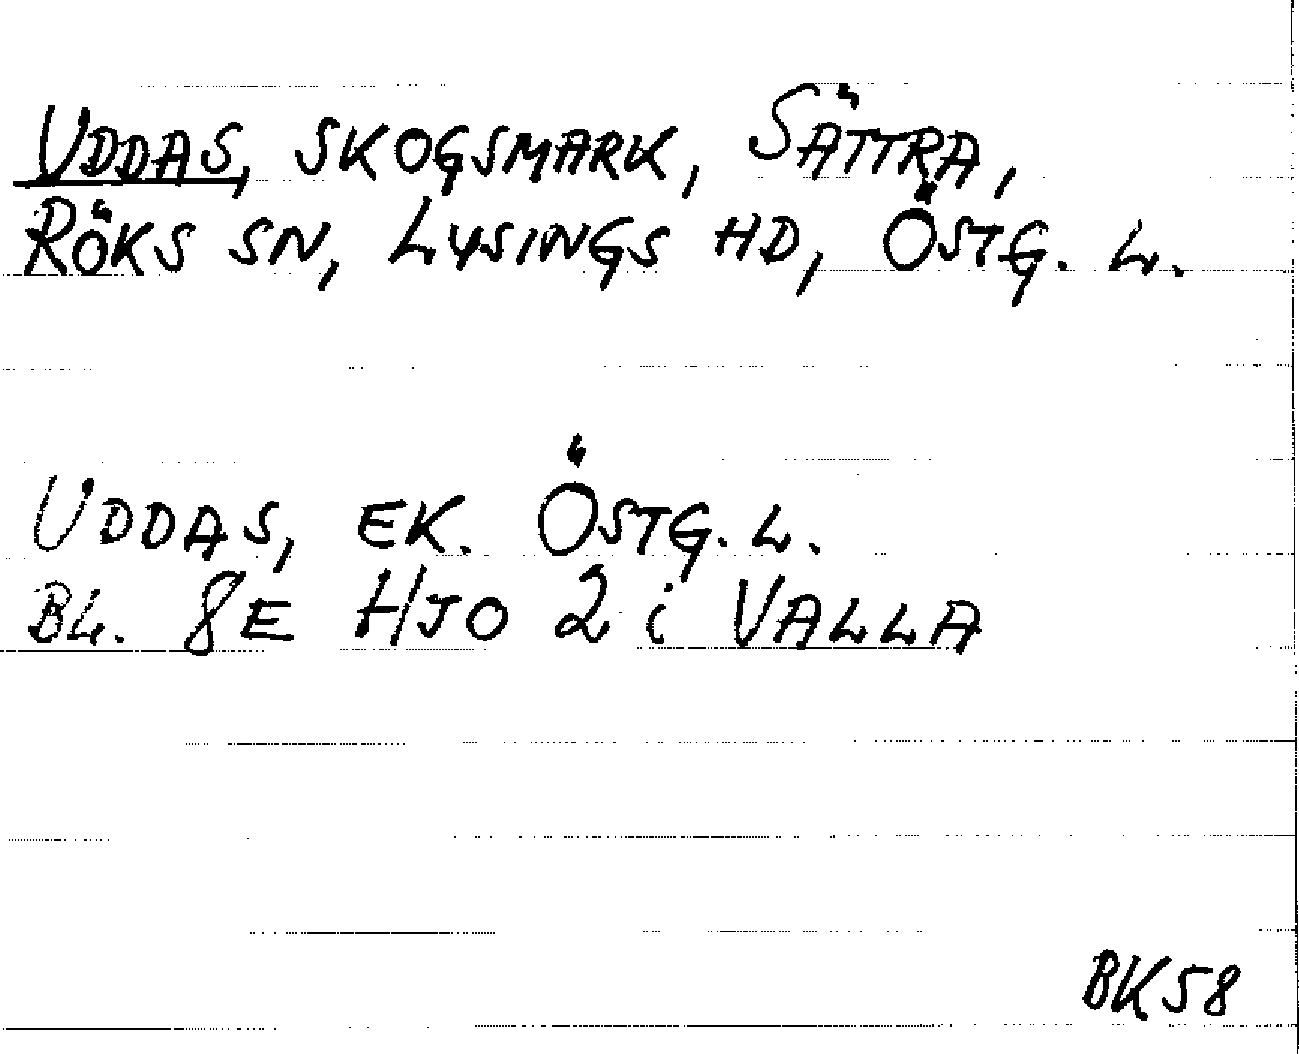 UDDAS, SKOGSMARK, SÄTTRA,
RÖKS SN, LYSINGS HD, ÖSTG. L.
UDDAS, EK. ÖSTG. L.
BL. 8E HJO 2 i VALLA
BK58